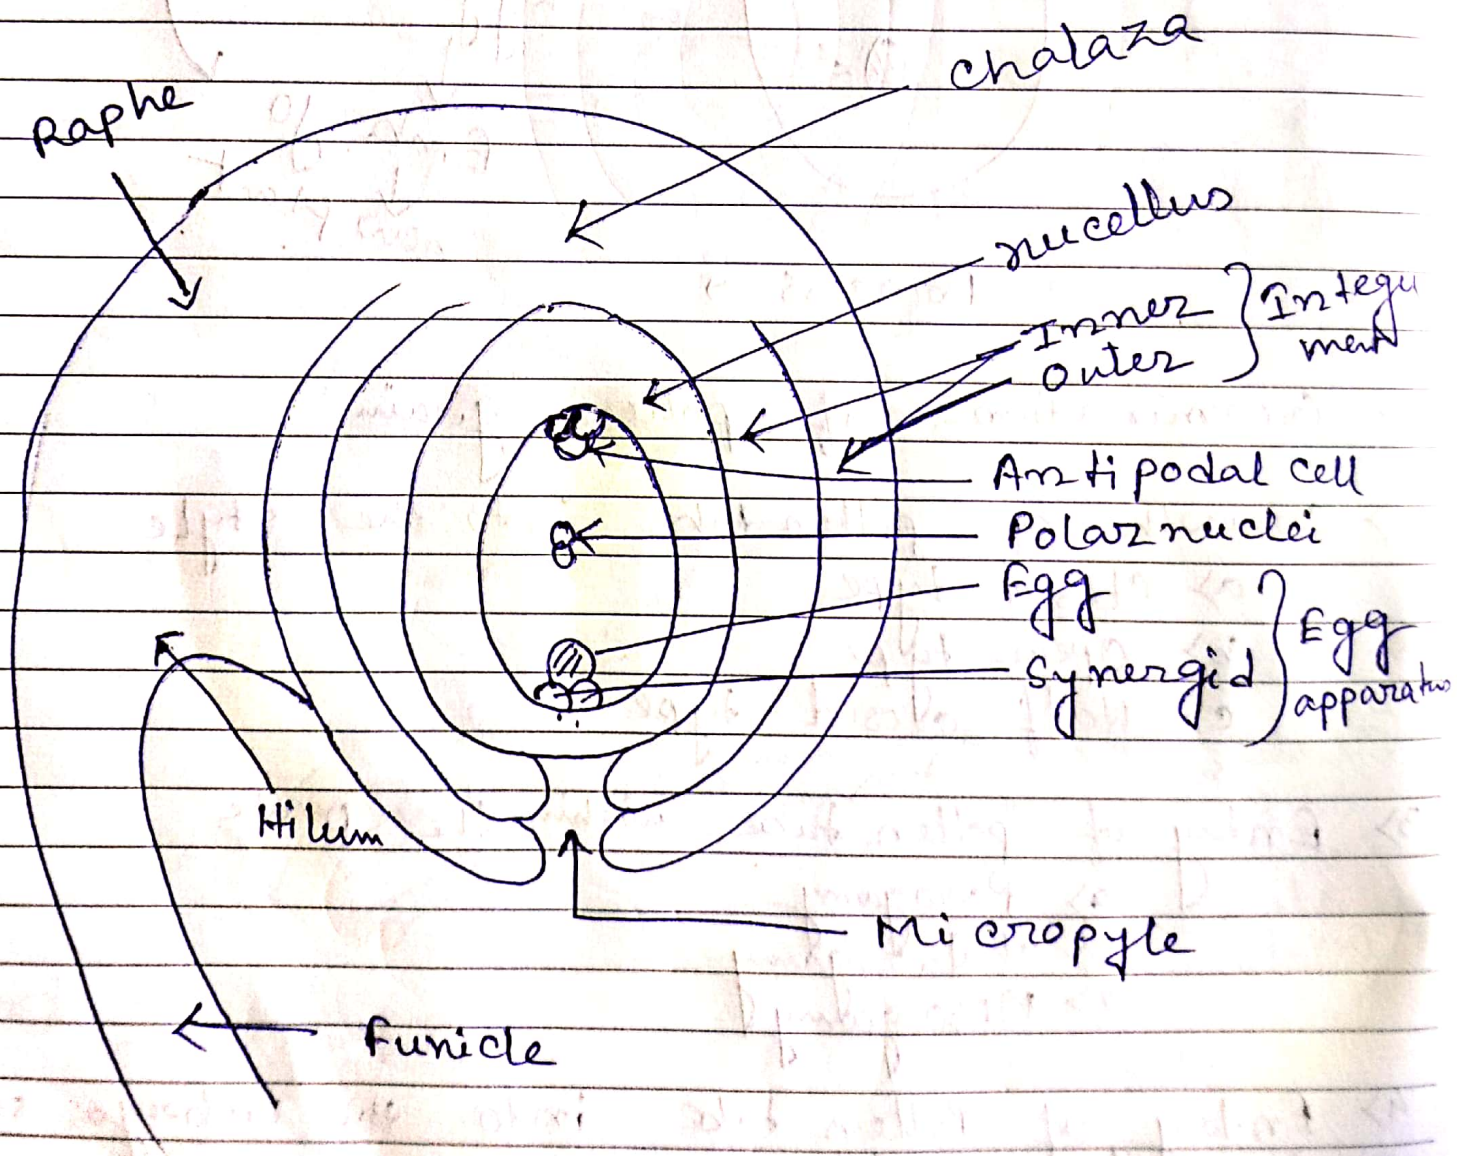 Chalaza
Raphe
nucellus
Inner
Outer
Integu
ment
Antipodal cell
Polar nuclei
Egg
Synergid
Egg
apparatus
Hilum
Micropyle
Funicle